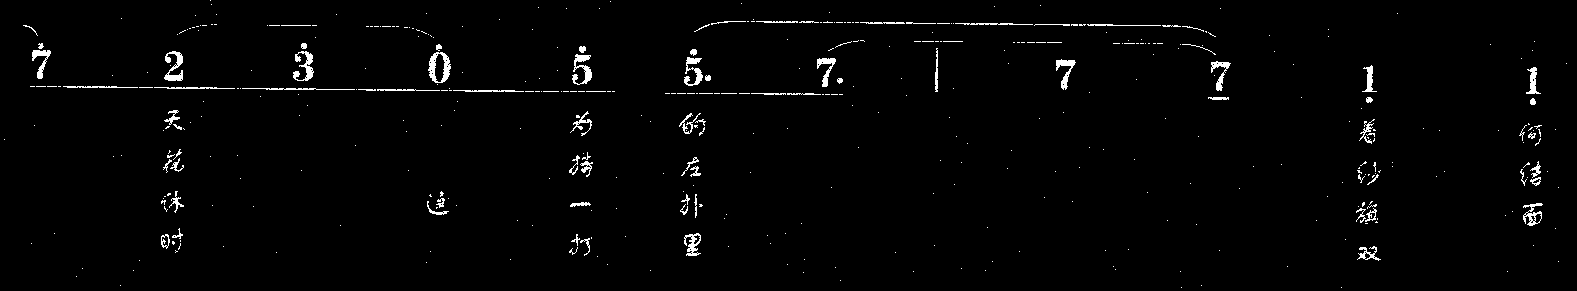 7 2 3 0 5 5. 7. | 7 7 1 1
天 为 的 着 何
花 左 纱 结
休 这 一 扑 旗 面
时 打 里 双